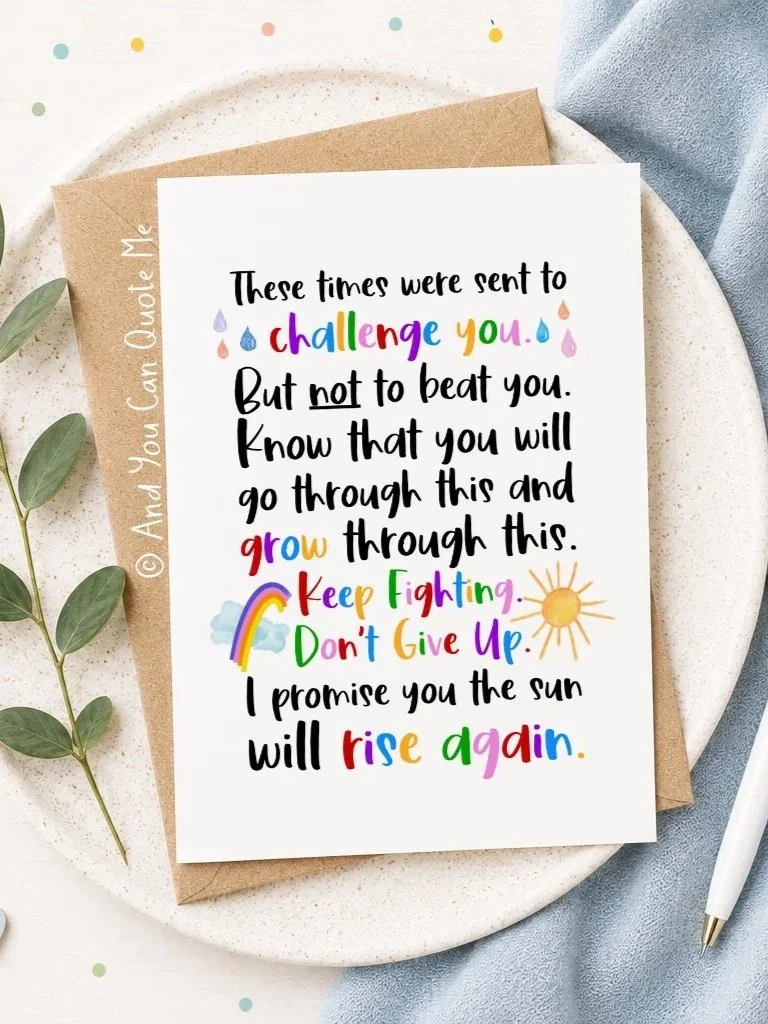 These times were sent to
challenge you.
But not to beat you.
Know that you will
go through this and
grow through this.
Keep Fighting.
Don't Give Up.
I promise you the sun
will rise again.
© And You Can Quote Me